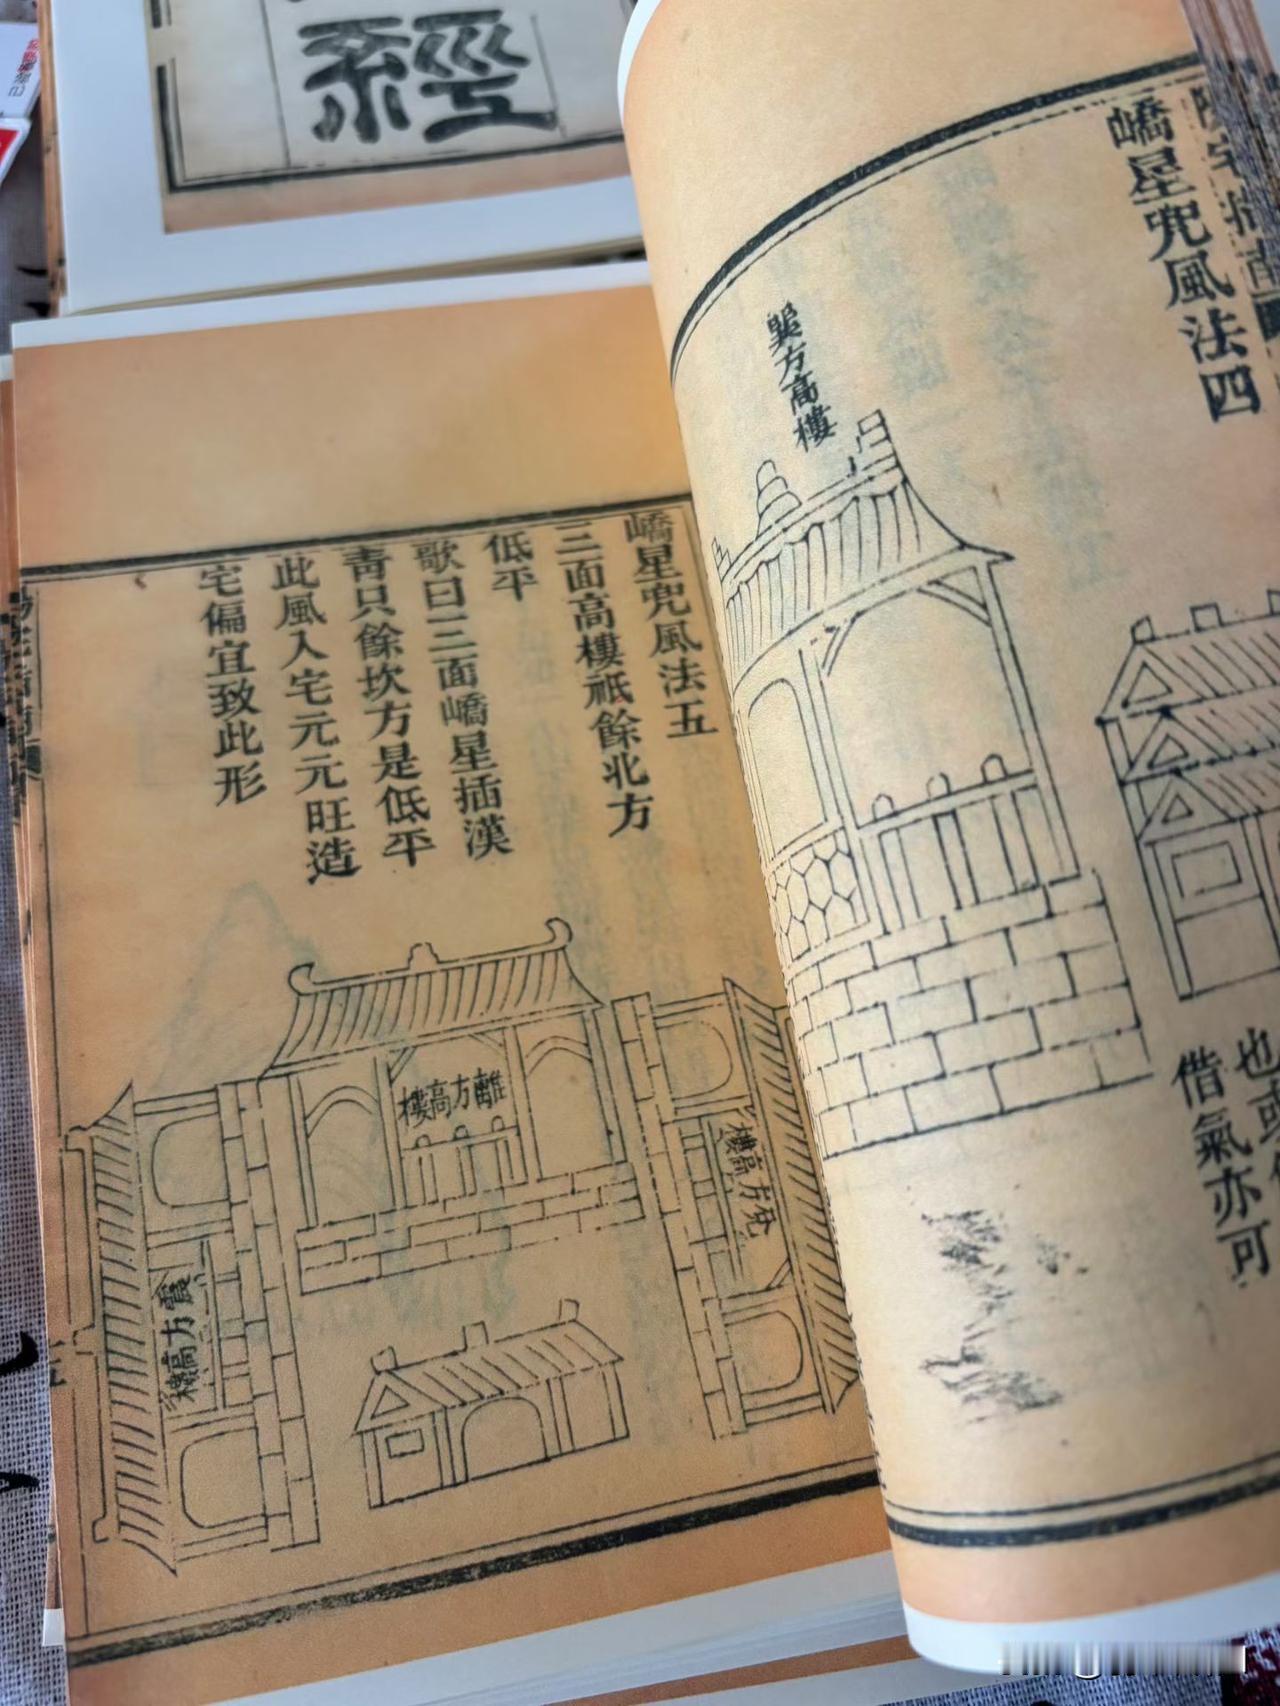 經
嶠星兜風法四
巽方高樓
也或
借氣亦可
嶠星兜風法五
三面高樓祇餘北方
低平
歌曰三面嶠星插漢
青只餘坎方是低平
此風入宅元元旺造
宅偏宜致此形
離方高樓
兌方高樓
震方高樓